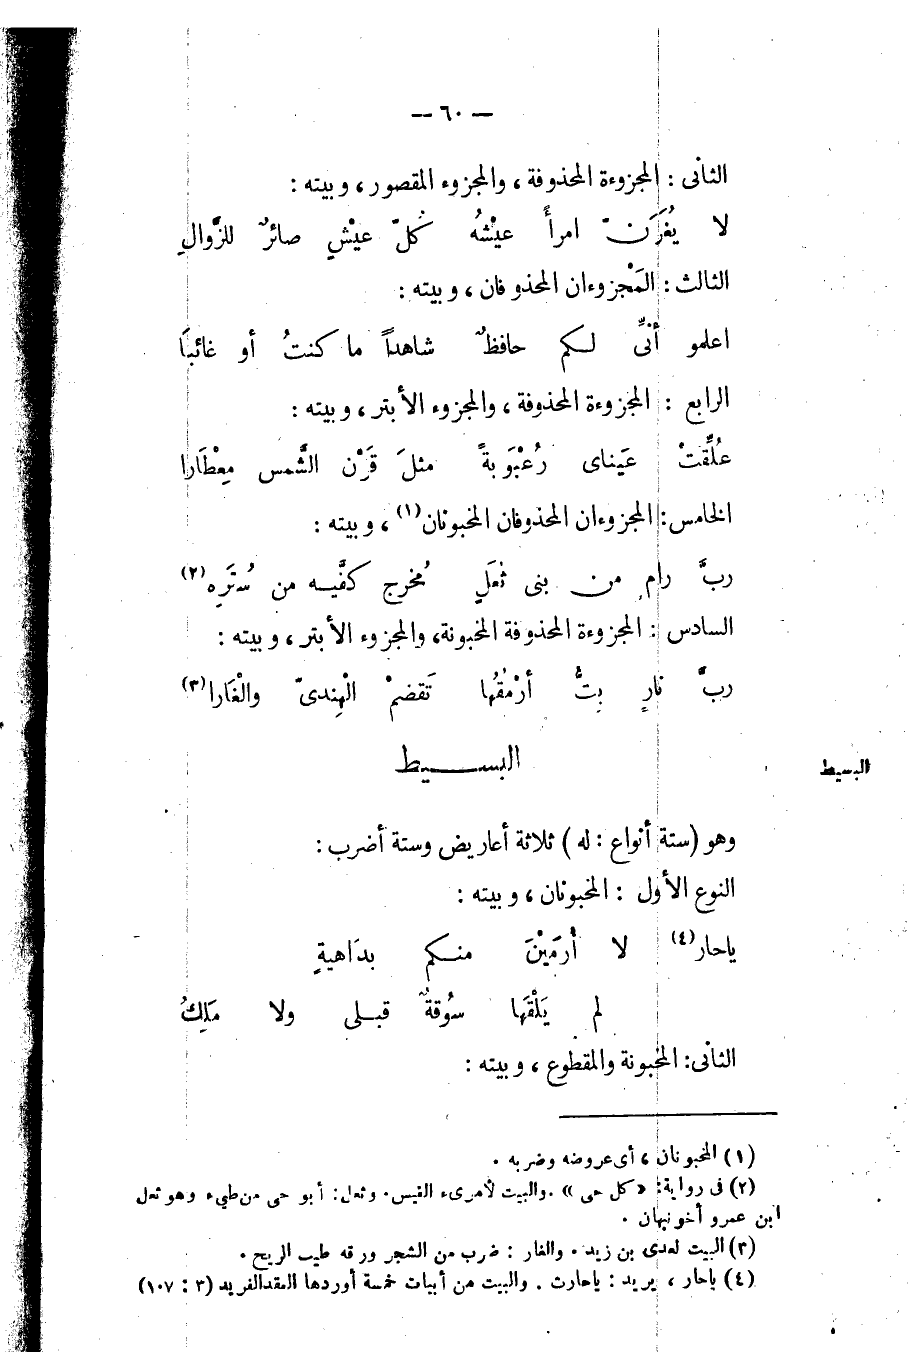 — ٦٠ —
الثانى : المجزوءة المحذوفة ، والمجزوء المقصور ، وبيته :
لا يُغرَّنَّ امرأً عيْشُه كُلّ عيْشٍ صائرٌ للزَّوالِ
الثالث : المَجزوءان المحذوفان ، وبيته :
اعلمو أنِّى لكم حافظٌ شاهداً ما كنتُ أو غائبَا
الرابع : المجزوءة المحذوفة ، والمجزوء الأبتر ، وبيته :
عُلِّقتْ عَينَاى رُعْبُوبةً مثلَ قَرْن الشَّمس مِعْطَارا
الخامس : المجزوءان المحذوفان المخبونان(١) ، وبيته :
ربَّ رامٍ من بنى ثُعَلٍ مُخرج كفَّيه من سُتَرِه(٢)
السادس : المجزوءة المحذوفة المخبونة، والمجزوء الأبتر ، وبيته :
ربَّ نارٍ بِتُّ أرْمُقُها تَقضمْ الْهِندىّ والْغَارا(٣)
البسيط
البسيط
وهو (ستة أنواع : له ) ثلاثة أعاريض وستة أضرب :
النوع الأول : المخبونان ، وبيته :
ياحار(٤) لا أُرمَيْنَ منكم بدَاهيةٍ
لم يَلْقَها سُوقةٌ قبلى ولا مَلِكُ
الثانى: المخبونة والمقطوع ، وبيته :
(١) المخبونان ، أى عروضه وضربه .
(٢) فى رواية: «كل حى» .والبيت لأمرىء القيس. وثعل: أبو حى من طىء وهو ثعل
ابن عمرو أخونبهان .
(٣) البيت لعدى بن زيد . والغار : ضرب من الشجر ورقه طيب الريح .
(٤) ياحار ، يريد : ياحارث . والبيت من أبيات خمسة أوردها العقدالفريد (٣ : ١٠٧)